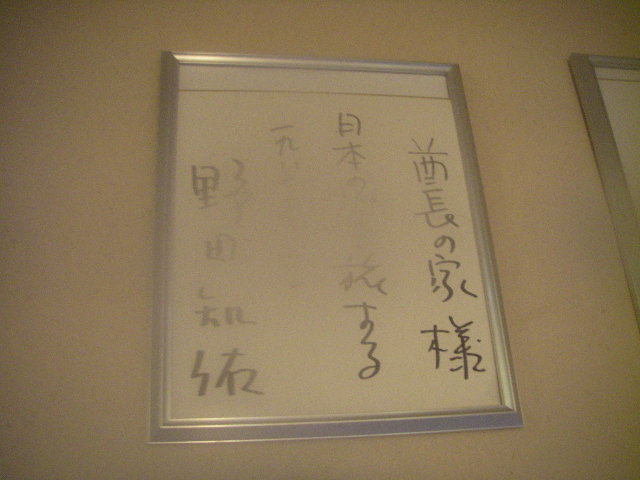 酋長の家様
日本の 旅する
一九八
野田知佑